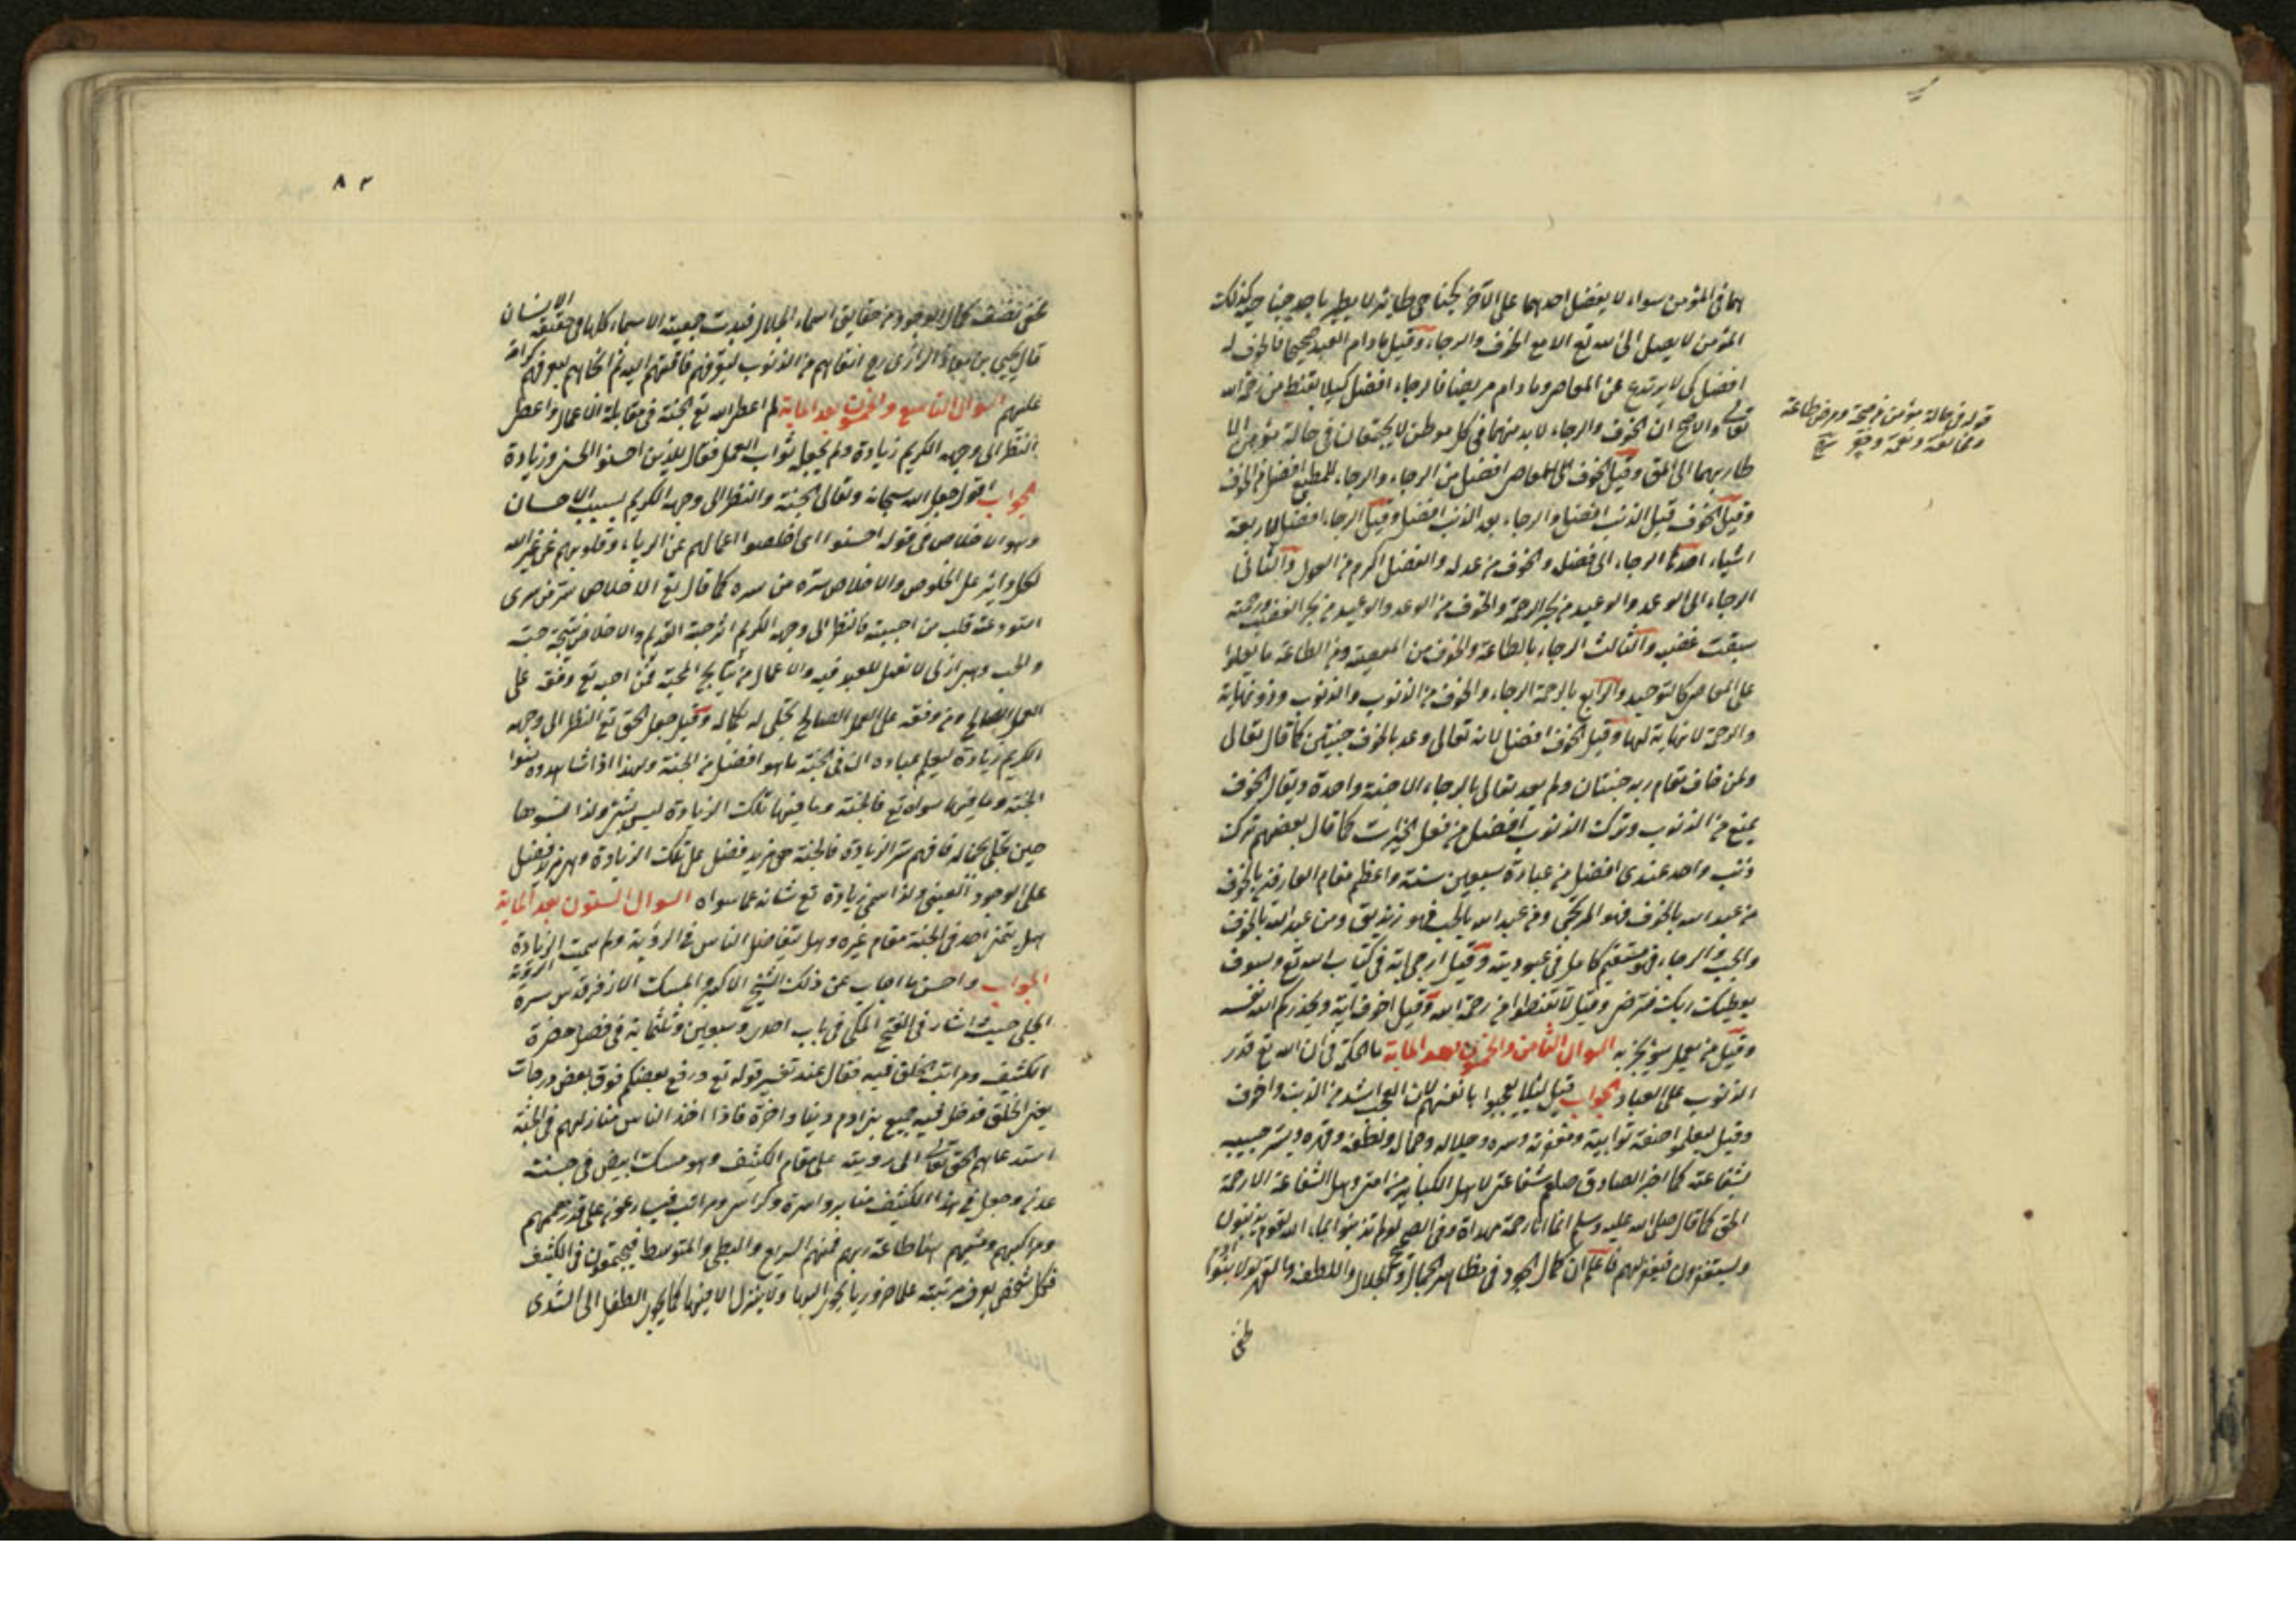 هما فى المؤمن سواء لا يفضل احدهما على الآخر كجناحى طاير لا يطير باحد جناحيه كذلك
المؤمن لا يصل الى الله تع الا مع الخوف والرجاء وقيل ما دام العبد صحيحا فالخوف له
افضل كى لا يرتدع عن المعاصى وما دام مريضا فالرجاء افضل كيلا يقنط من رحمة الله
تعالى والاصح ان الخوف والرجاء لا بد منهما فى كل موطن لا يجتمعان فى حالة مؤمن الا
طار بهما الى الحق وقيل الخوف للعاصى افضل من الرجاء والرجاء للمطيع افضل من الخوف
وقيل الخوف قبل الذنب افضل والرجاء بعد الذنب افضل وقيل الرجاء افضل لاربعة
اشياء احدها الرجاء الى فضله والخوف من عدله والفضل اكرم من العدل والثانى
الرجاء الى الوعد والوعيد من بحر الرحمة والخوف من الوعد والوعيد من بحر الغضب ورحمته
سبقت غضبه والثالث الرجاء بالطاعة والخوف من المعصية ومن الطاعة ما يعلوا
على المعاصى كالتوحيد والرابع بالرحمة الرجاء والخوف من الذنوب والذنوب وذو نهاية
والرحمة لا نهاية لها وقيل الخوف افضل لانه تعالى وعد بالخوف جنتين كما قال تعالى
ولمن خاف مقام ربه جنتان ولم يعد تعالى بالرجاء الا جنة واحدة ويقال الخوف
يمنع من الذنوب وترك الذنوب افضل من فعل الخيرات كما قال بعضهم ترك
ذنب واحد عندى افضل من عبادة سبعين سنة واعظم مقام العارفين بالخوف
من عبد الله بالخوف فهو المرجى ومن عبد الله بالحب فهو زنديق ومن عبد الله بالخوف
والحب والرجاء فهو مستقيم كامل فى عبوديته وقيل ارجى اية فى كتاب الله تع ولسوف
يعطيك ربك فترضى وقيل لا تقنطوا من رحمة الله وقيل اخوف اية ويحذركم الله نفسه
وقيل من يعمل سوء يجز به السوال الثامن والخمسون بعد الماية ما الحكمة فى ان الله تع قدر
الذنوب على العباد الجواب قيل لئلا يعجبوا بانفسهم لان العجب اشد من الذنب واخوف
وقيل ليعلموا صفة توابيته ومغفرته وسره وجلاله وجماله ولطفه وقهره وسر حبيبه
بشفاعته كما اخبر الصادق صلعم شفاعتى لاهل الكبائر من امتى وهل الشفاعة الا رحمة
الحق كما قال صلى الله عليه وسلم انما انا رحمة مهداة وفى الصحيح لو لم تذنبوا لجاء الله بقوم يذنبون
ويستغفرون فيغفر لهم فاعلم ان كمال الجود فى مظاهر الجمال والجلال واللطف والقهر
طفى
قوله فى حالة مؤمن من صحة ومرض وطاعة
ومخالفة ونعمة
٨٢
قال يحيى بن معاذ الرازى رح اثقالهم من الذنوب ليعرفهم فاقتهم اليه ثم اتكالهم ليعرفهم كرامته
عليهم السوال التاسع والخمسون بعد الماية لم اعطى الله تع الجنة فى مقابلة الاعمال واعطى
النظر الى وجهه الكريم زيادة ولم يجعله ثواب العمل فقال للذين احسنوا الحسنى وزيادة
الجواب اقول جعل الله سبحانه وتعالى الجنة والنظر الى وجهه الكريم بسبب الاحسان
وهو الاخلاص فى قوله احسنوا اى اخلصوا اعمالهم عن الرياء وقلوبهم عن غير الله
لكل واثر على الخلوص والاخلاص سره من سره كما قال تع الاخلاص سر من سرى
استودعته قلب من احببته فالنظر الى وجهه الكريم اثر محبة القديم والاخلاص نتيجة حب
والحب وهبى ازلى لا تعمل للعبد فيه والاعمال من نتايج المحبة فمن احبه تع وفقه على
العمل الصالح ومن وفقه على العمل الصالح تجلى له بكماله وقيل جعل الحق تع النظر الى وجهه
الكريم زيادة ليعلم عباده ان فى الجنة ما هو افضل من الجنة ولهذا اذا شاهدوه نسوا
الجنة وما فيها سواه تع فالجنة وما فيها بتلك الزيادة ليس بشئ ولذا نسوها
حين تجلى بجماله فافهم سر الزيادة فالجنة هى مزيد فضل على تلك الزيادة
على الوجود العينى ولذا سمى زيادة تع شانه عما سواه السوال الستون بعد الماية
هل يتمنى احد فى الجنة مقام غيره وهل يتفاضل الناس فى الرؤية ولم سميت الزيادة الرؤية
الجواب واحسن ما اجاب عن ذلك الشيخ الاكبر والمسك الاذفر قدس سره
الجلى حيث اشار فى الفتح المكى فى باب احدى وسبعين وثلثماية فى فصل حضرة
الكثيب ومراتب الخلق فيه فقال عند تفسير قوله تع ورفع بعضكم فوق بعض درجات
يعنى الخلق فدخل فيه جميع بنى آدم دنيا واخرة فاذا اخذ الناس منازلهم فى الجنة
استدعاهم الحق تعالى الى رؤيته على مقام الكثيب وهو مسك ابيض فى جنة
عدن وجعل فى هذا الكثيب منابر واسرة وكراسى ومراتب فيسارعون على قدر هممهم
ومراكبهم ومشيهم هنا طاعة ربهم فمنهم السريع والبطى والمتوسط فيجتمعون فى الكثيب
فكل شخص يعرف مرتبته علما ضروريا يجرى اليها ولا ينزل الا فيها كما يجرى الطفل الى الثدى